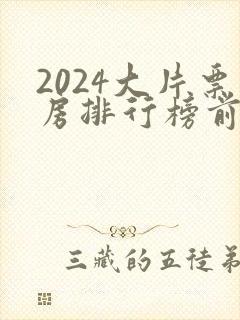 2024大片票
房排行榜前
三藏的五徒弟